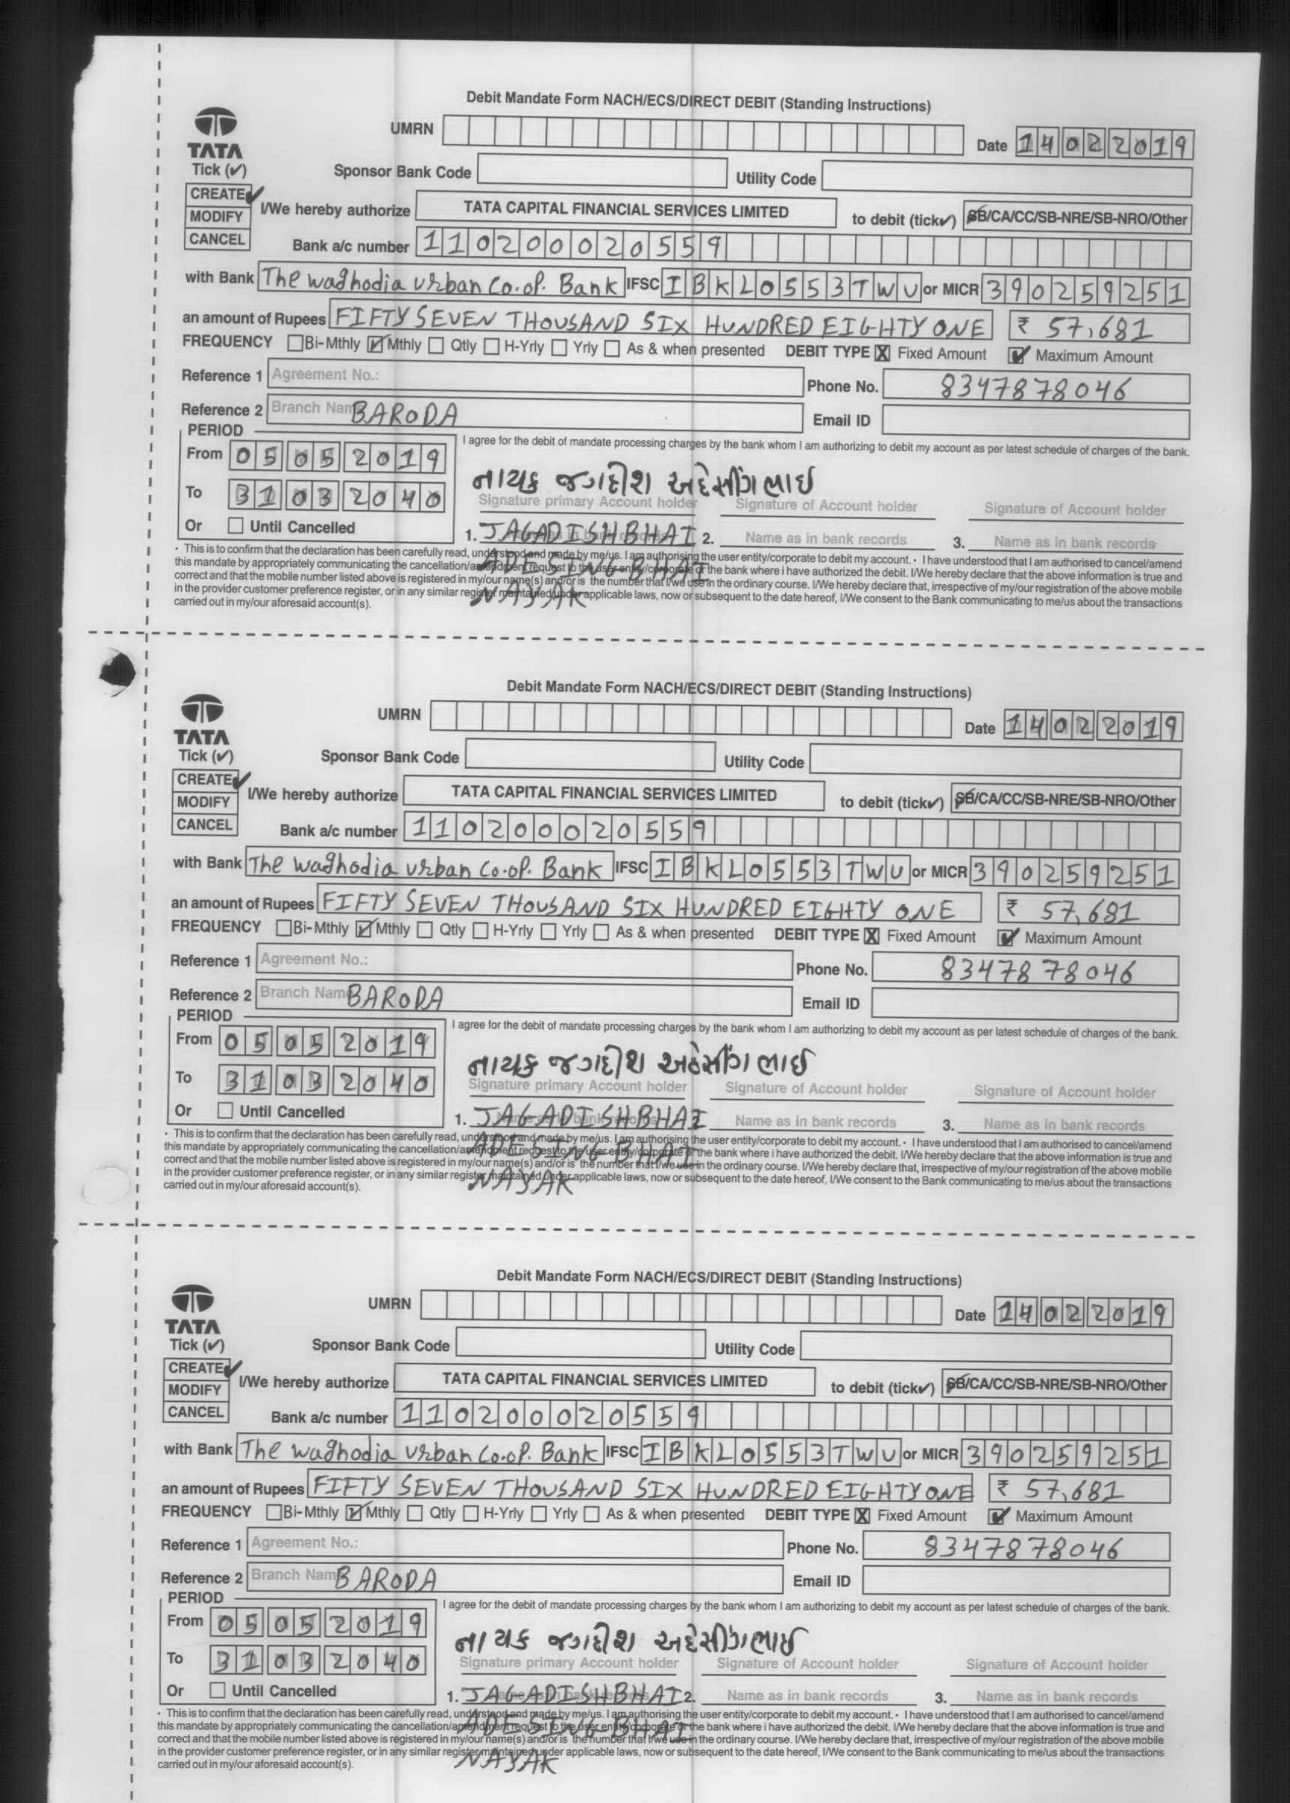 Debit Mandate Form NACH/ECS/DIRECT DEBIT (Standing Instructions)
TATA
UMRN Date 14022019
Tick (✓) Sponsor Bank Code Utility Code
CREATE ✓
MODIFY
CANCEL
I/We hereby authorize TATA CAPITAL FINANCIAL SERVICES LIMITED to debit (tick✓) SB/CA/CC/SB-NRE/SB-NRO/Other
Bank a/c number 110200020559
with Bank The waghodia urban Co.op. Bank IFSC IBKL0553TWU or MICR 390259251
an amount of Rupees FIFTY SEVEN THOUSAND SIX HUNDRED EIGHTY ONE ₹ 57,681
FREQUENCY Bi-Mthly Mthly Qtly H-Yrly Yrly As & when presented DEBIT TYPE Fixed Amount Maximum Amount
Reference 1 Agreement No.: Phone No. 8347878046
Reference 2 Branch Name BARODA Email ID
PERIOD
I agree for the debit of mandate processing charges by the bank whom I am authorizing to debit my account as per latest schedule of charges of the bank.
From 05052019
To 31032040
નાયક જગદીશ અદેસીંગભાઈ
Signature primary Account holder Signature of Account holder Signature of Account holder
Or Until Cancelled 1. JAGADISHBHAI 2. Name as in bank records 3. Name as in bank records
ADESINGBHAI
NAYAK
• This is to confirm that the declaration has been carefully read, understood and made by me/us. I am authorising the user entity/corporate to debit my account. • I have understood that I am authorised to cancel/amend
this mandate by appropriately communicating the cancellation/amendment request to the user entity/corporate or the bank where i have authorized the debit. I/We hereby declare that the above information is true and
correct and that the mobile number listed above is registered in my/our name(s) and/or is the number that I/we use in the ordinary course. I/We hereby declare that, irrespective of my/our registration of the above mobile
in the provider customer preference register, or in any similar register maintained under applicable laws, now or subsequent to the date hereof, I/We consent to the Bank communicating to me/us about the transactions
carried out in my/our aforesaid account(s).
Debit Mandate Form NACH/ECS/DIRECT DEBIT (Standing Instructions)
TATA
UMRN Date 14022019
Tick (✓) Sponsor Bank Code Utility Code
CREATE ✓
MODIFY
CANCEL
I/We hereby authorize TATA CAPITAL FINANCIAL SERVICES LIMITED to debit (tick✓) SB/CA/CC/SB-NRE/SB-NRO/Other
Bank a/c number 110200020559
with Bank The waghodia urban Co.op. Bank IFSC IBKL0553TWU or MICR 390259251
an amount of Rupees FIFTY SEVEN THOUSAND SIX HUNDRED EIGHTY ONE ₹ 57,681
FREQUENCY Bi-Mthly Mthly Qtly H-Yrly Yrly As & when presented DEBIT TYPE Fixed Amount Maximum Amount
Reference 1 Agreement No.: Phone No. 8347878046
Reference 2 Branch Name BARODA Email ID
PERIOD
I agree for the debit of mandate processing charges by the bank whom I am authorizing to debit my account as per latest schedule of charges of the bank.
From 05052019
To 31032040
નાયક જગદીશ અદેસીંગભાઈ
Signature primary Account holder Signature of Account holder Signature of Account holder
Or Until Cancelled 1. JAGADISHBHAI Name as in bank records 3. Name as in bank records
ADESINGBHAI
NAYAK
• This is to confirm that the declaration has been carefully read, understood and made by me/us. I am authorising the user entity/corporate to debit my account. • I have understood that I am authorised to cancel/amend
this mandate by appropriately communicating the cancellation/amendment request to the user entity/corporate or the bank where i have authorized the debit. I/We hereby declare that the above information is true and
correct and that the mobile number listed above is registered in my/our name(s) and/or is the number that I/we use in the ordinary course. I/We hereby declare that, irrespective of my/our registration of the above mobile
in the provider customer preference register, or in any similar register maintained under applicable laws, now or subsequent to the date hereof, I/We consent to the Bank communicating to me/us about the transactions
carried out in my/our aforesaid account(s).
Debit Mandate Form NACH/ECS/DIRECT DEBIT (Standing Instructions)
TATA
UMRN Date 14022019
Tick (✓) Sponsor Bank Code Utility Code
CREATE ✓
MODIFY
CANCEL
I/We hereby authorize TATA CAPITAL FINANCIAL SERVICES LIMITED to debit (tick✓) SB/CA/CC/SB-NRE/SB-NRO/Other
Bank a/c number 110200020559
with Bank The waghodia urban Co.op. Bank IFSC IBKL0553TWU or MICR 390259251
an amount of Rupees FIFTY SEVEN THOUSAND SIX HUNDRED EIGHTY ONE ₹ 57,681
FREQUENCY Bi-Mthly Mthly Qtly H-Yrly Yrly As & when presented DEBIT TYPE Fixed Amount Maximum Amount
Reference 1 Agreement No.: Phone No. 8347878046
Reference 2 Branch Name BARODA Email ID
PERIOD
I agree for the debit of mandate processing charges by the bank whom I am authorizing to debit my account as per latest schedule of charges of the bank.
From 05052019
To 31032040
નાયક જગદીશ અદેસીંગભાઈ
Signature primary Account holder Signature of Account holder Signature of Account holder
Or Until Cancelled 1. JAGADISHBHAI 2. Name as in bank records 3. Name as in bank records
ADESINGBHAI
NAYAK
• This is to confirm that the declaration has been carefully read, understood and made by me/us. I am authorising the user entity/corporate to debit my account. • I have understood that I am authorised to cancel/amend
this mandate by appropriately communicating the cancellation/amendment request to the user entity/corporate or the bank where i have authorized the debit. I/We hereby declare that the above information is true and
correct and that the mobile number listed above is registered in my/our name(s) and/or is the number that I/we use in the ordinary course. I/We hereby declare that, irrespective of my/our registration of the above mobile
in the provider customer preference register, or in any similar register maintained under applicable laws, now or subsequent to the date hereof, I/We consent to the Bank communicating to me/us about the transactions
carried out in my/our aforesaid account(s).